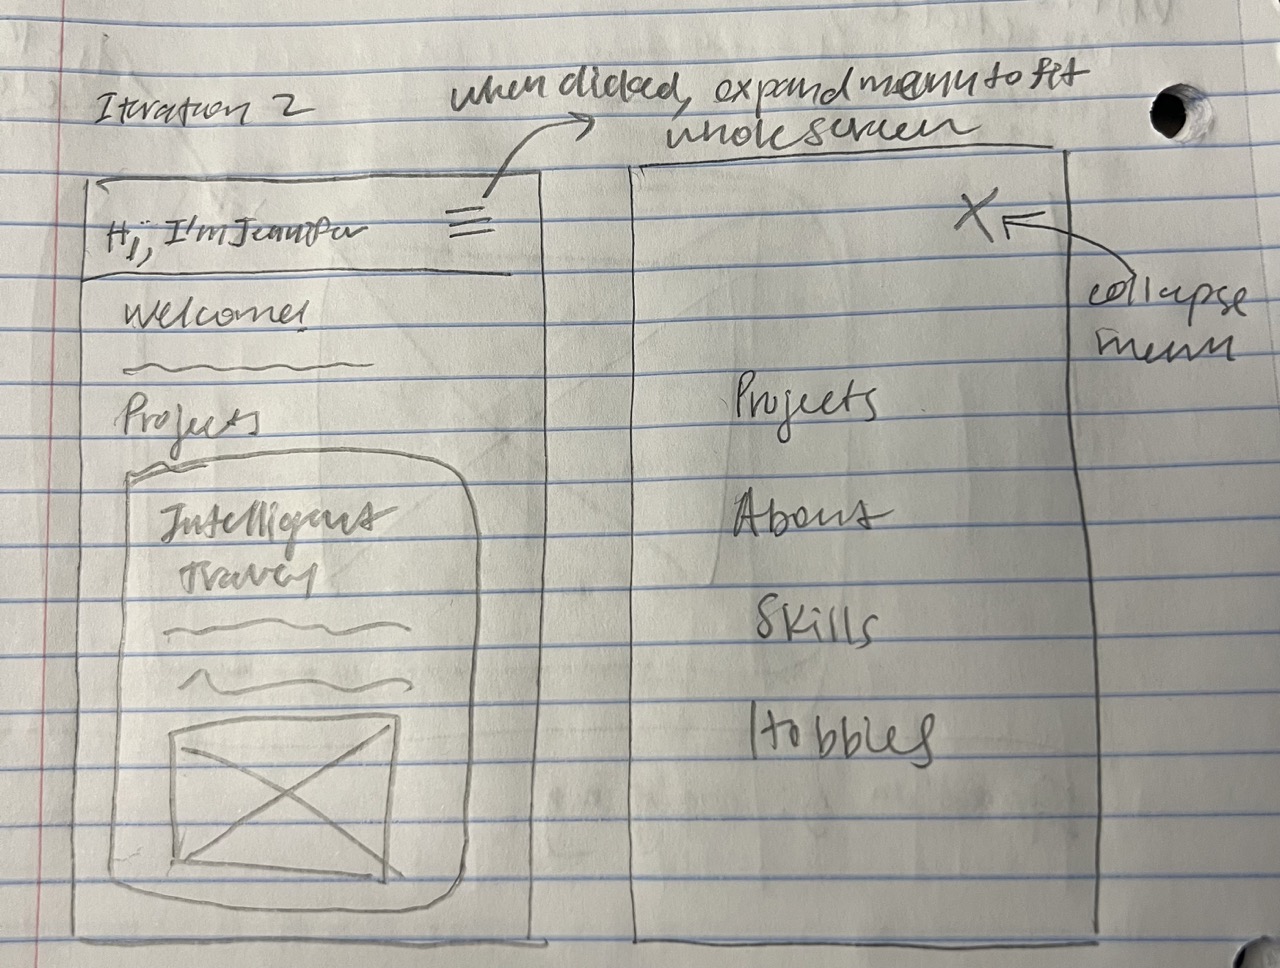 Iteration 2
when clicked, expand menu to fit
whole screen
Hi, I'm Jennifer
Welcome!
Projects
Intelligent
Travel
X
collapse
menu
Projects
About
Skills
Hobbies